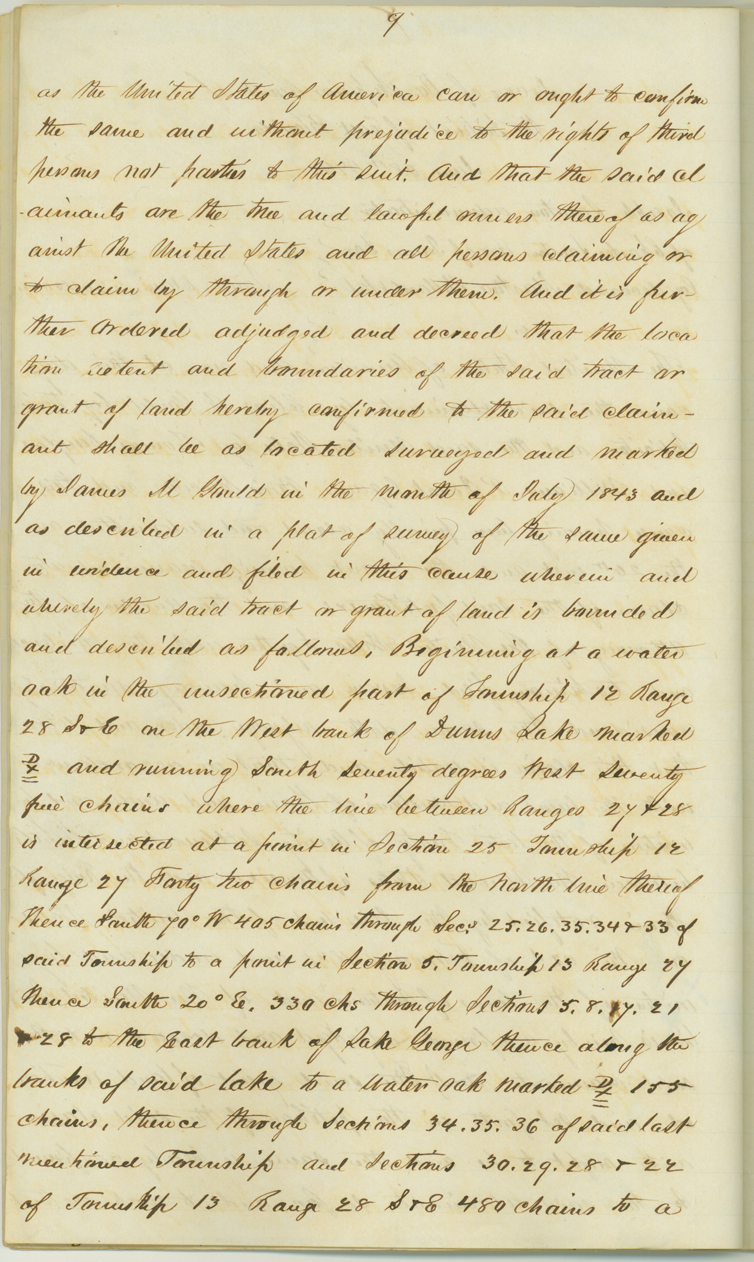 9
as the United States of America can or ought to confirm
the same and without prejudice to the rights of third
persons not parties to this suit. And that the said cl
-aimants are the true and lawful owners thereof as ag
ainst the United States and all persons claiming or
to claim by through or under them. And it is fur-
ther Ordered adjudged and decreed that the loca
tion extent and boundaries of the said tract or
grant of land hereby confirmed to the said claim-
ant shall be as located surveyed and marked
by James M Gould in the month of July 1843 and
as described in a plat of survey of the same given
in evidence and filed in this cause wherein and
whereby the said tract or grant of land is bounded
and described as follows, Beginning at a water
oak in the unsectioned part of Township 12 Range
28 S&E on the West bank of Dunns Lake marked
D
X and running South seventy degrees West seventy
five chains where the line between Ranges 27 & 28
is intersected at a point in Section 25 Township 12
Range 27 Forty two chains from the north line thereof
thence South 70° W 405 chains through Secs 25.26.35.34 & 33 of
said Township to a point in Section 5. Township 13 Range 27
thence South 20° E. 330 chs through Sections 5. 8. 17. 21
& 28 to the East bank of Lake George thence along the
banks of said lake to a Water oak marked D
X 155
chains, thence through Sections 34. 35. 36 of said last
mentioned Township and Sections 30. 29. 28 & 22
of Township 13 Range 28 S&E 480 chains to a